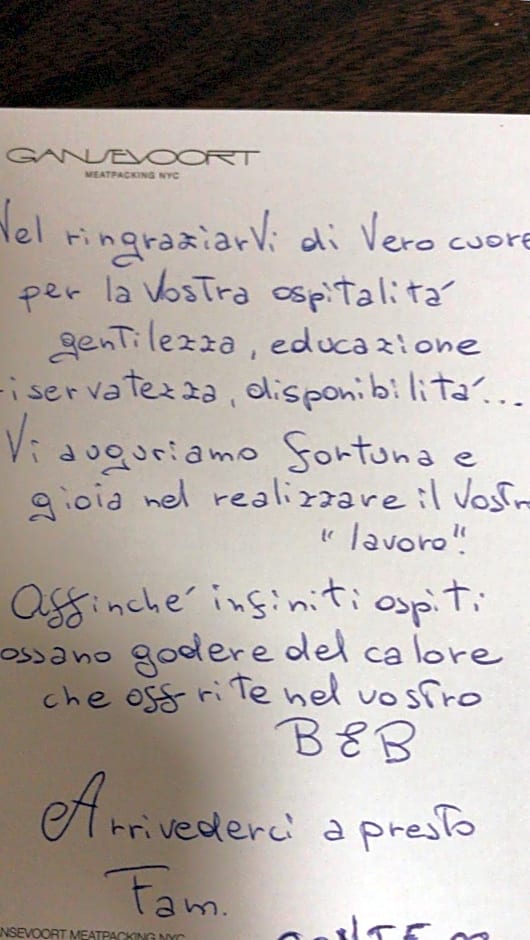 GANSEVOORT
MEATPACKING NYC
Nel ringraziarVi di Vero cuore
per la Vostra ospitalità
gentilezza, educazione
riservatezza, disponibilità...
Vi auguriamo fortuna e
gioia nel realizzare il Vostro
"lavoro".
Affinché infiniti ospiti
possano godere del calore
che offrite nel vostro
B&B
Arrivederci a presto
Fam.
NSEVOORT MEATPACKING NYC